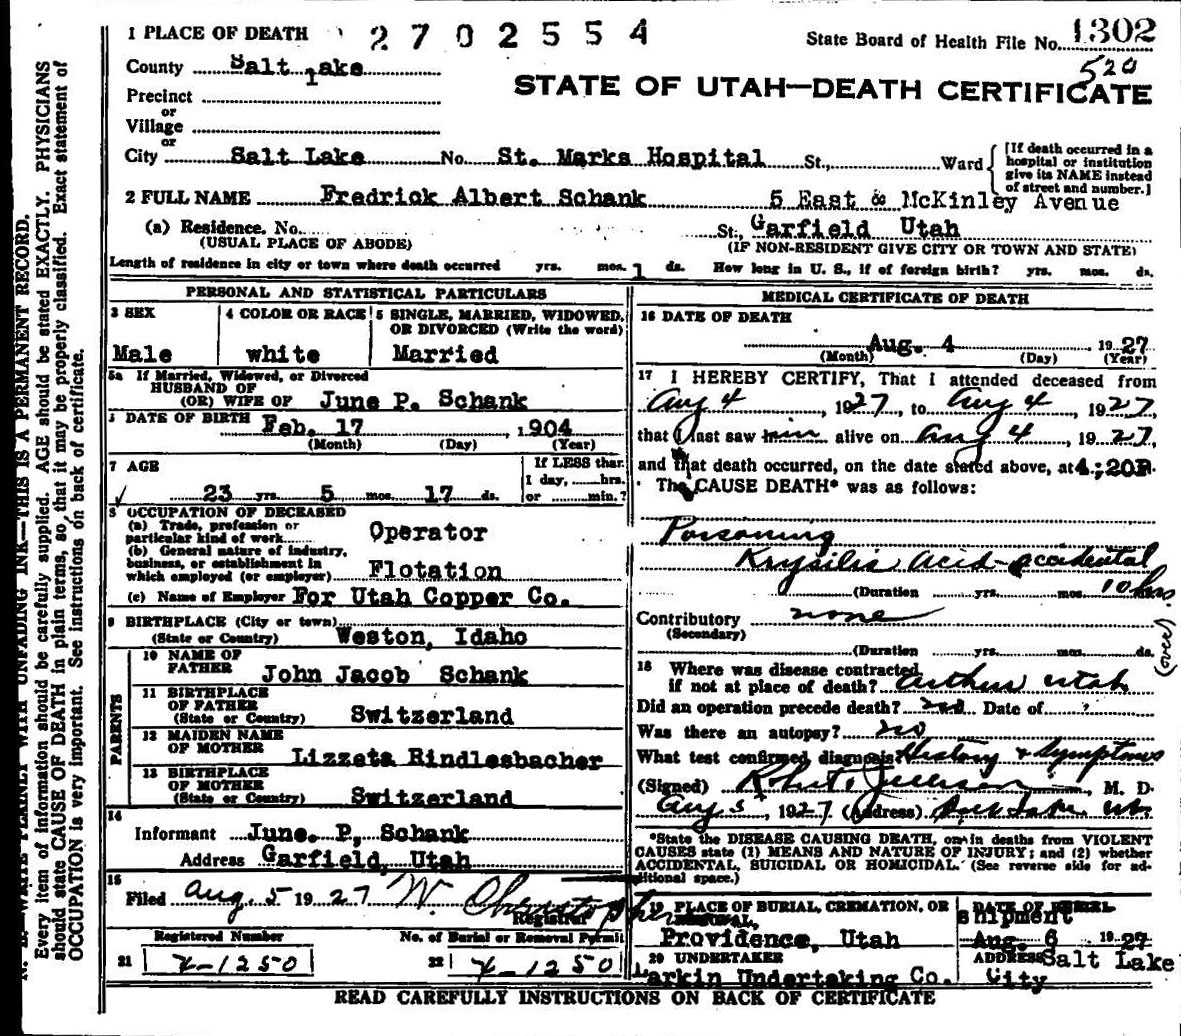 1 PLACE OF DEATH 2702554 State Board of Health File No. 1302
County Salt Lake 520
STATE OF UTAH—DEATH CERTIFICATE
Precinct
or
Village
or
City Salt Lake No. St. Marks Hospital St., Ward
[If death occurred in a hospital or institution give its NAME instead of street and number.]
2 FULL NAME Fredrick Albert Schank 5 East & McKinley Avenue
(a) Residence. No. St., Garfield Utah
(USUAL PLACE OF ABODE) (IF NON-RESIDENT GIVE CITY OR TOWN AND STATE)
Length of residence in city or town where death occurred yrs. mos. 1 ds. How long in U. S., if of foreign birth? yrs. mos. ds.
PERSONAL AND STATISTICAL PARTICULARS
3 SEX 4 COLOR OR RACE 5 SINGLE, MARRIED, WIDOWED, OR DIVORCED (Write the word)
Male white Married
5a If Married, Widowed, or Divorced
HUSBAND OF
(OR) WIFE OF June P. Schank
DATE OF BIRTH Feb. 17 1904
(Month) (Day) (Year)
7 AGE If LESS than
1 day, hrs.
23 yrs. 5 mos. 17 ds. or min.?
8 OCCUPATION OF DECEASED
(a) Trade, profession or
particular kind of work Operator
(b) General nature of industry,
business, or establishment in
which employed (or employer) Flotation
(c) Name of Employer For Utah Copper Co.
9 BIRTHPLACE (City or town)
(State or Country) Weston, Idaho
PARENTS
10 NAME OF
FATHER John Jacob Schank
11 BIRTHPLACE
OF FATHER
(State or Country) Switzerland
12 MAIDEN NAME
OF MOTHER Lizzeta Rindlesbacher
13 BIRTHPLACE
OF MOTHER
(State or Country) Switzerland
14
Informant June. P, Schank
Address Garfield, Utah
15
Filed Aug. 5 1927 W.
Registrar
Registered Number No. of Burial or Removal Permit
21 X-1250 22 X-1250
MEDICAL CERTIFICATE OF DEATH
16 DATE OF DEATH
Aug. 4 1927
(Month) (Day) (Year)
17 I HEREBY CERTIFY, That I attended deceased from
Aug 4, 1927, to Aug 4, 1927,
that I last saw him alive on Aug 4, 1927,
and that death occurred, on the date stated above, at 4:20P.
The CAUSE DEATH* was as follows:
Poisoning
Krysilis Acid - accidental
(Duration yrs. mos. 10 hrs
Contributory none
(Secondary)
(Duration yrs. mos. ds.
(over)
18 Where was disease contracted
if not at place of death? Arthur Utah
Did an operation precede death? no Date of
Was there an autopsy? no
What test confirmed diagnosis? History & Symptoms
(Signed) Robert, M. D.
Aug 5, 1927 (Address) Salt Lake
*State the DISEASE CAUSING DEATH, or in deaths from VIOLENT
CAUSES state (1) MEANS AND NATURE OF INJURY; and (2) whether
ACCIDENTAL, SUICIDAL OR HOMICIDAL. (See reverse side for additional space.)
19 PLACE OF BURIAL, CREMATION, OR REMOVAL, DATE OF BURIAL
shipment
Providence, Utah Aug. 6 1927
20 UNDERTAKER ADDRESS Salt Lake
Larkin Undertaking Co. City
READ CAREFULLY INSTRUCTIONS ON BACK OF CERTIFICATE
N. B.—WRITE PLAINLY WITH UNFADING INK—THIS IS A PERMANENT RECORD.
Every item of information should be carefully supplied. AGE should be stated EXACTLY. PHYSICIANS
should state CAUSE OF DEATH in plain terms, so that it may be properly classified. Exact statement of
OCCUPATION is very important. See instructions on back of certificate.